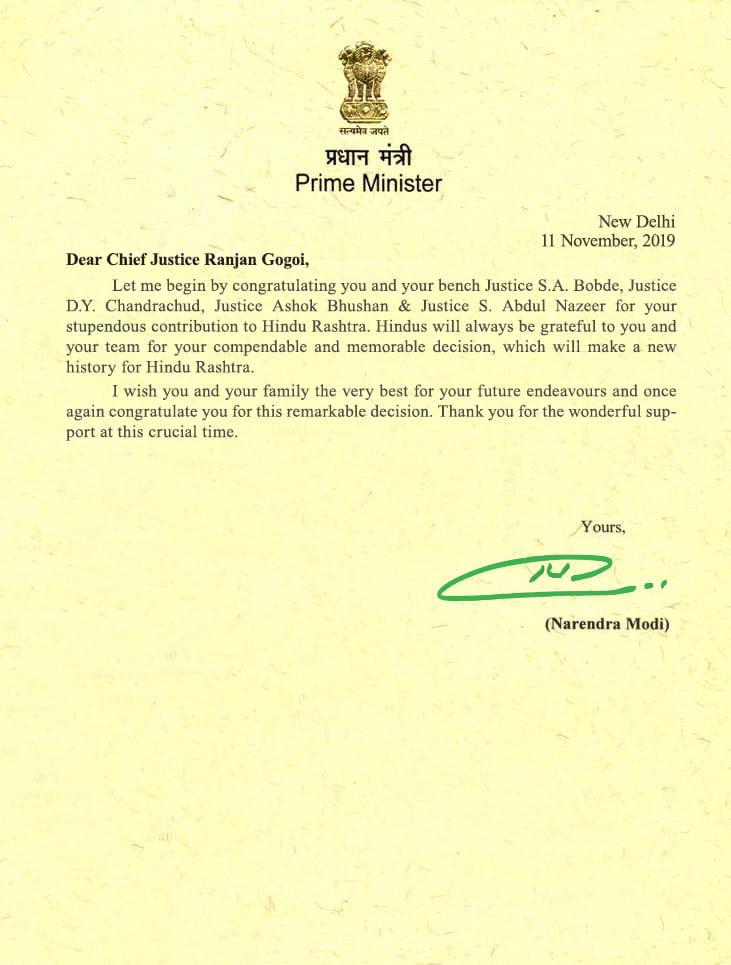 सत्यमेव जयते
प्रधान मंत्री
Prime Minister
New Delhi
11 November, 2019
Dear Chief Justice Ranjan Gogoi,
Let me begin by congratulating you and your bench Justice S.A. Bobde, Justice
D.Y. Chandrachud, Justice Ashok Bhushan & Justice S. Abdul Nazeer for your
stupendous contribution to Hindu Rashtra. Hindus will always be grateful to you and
your team for your compendable and memorable decision, which will make a new
history for Hindu Rashtra.
I wish you and your family the very best for your future endeavours and once
again congratulate you for this remarkable decision. Thank you for the wonderful sup-
port at this crucial time.
Yours,
(Narendra Modi)